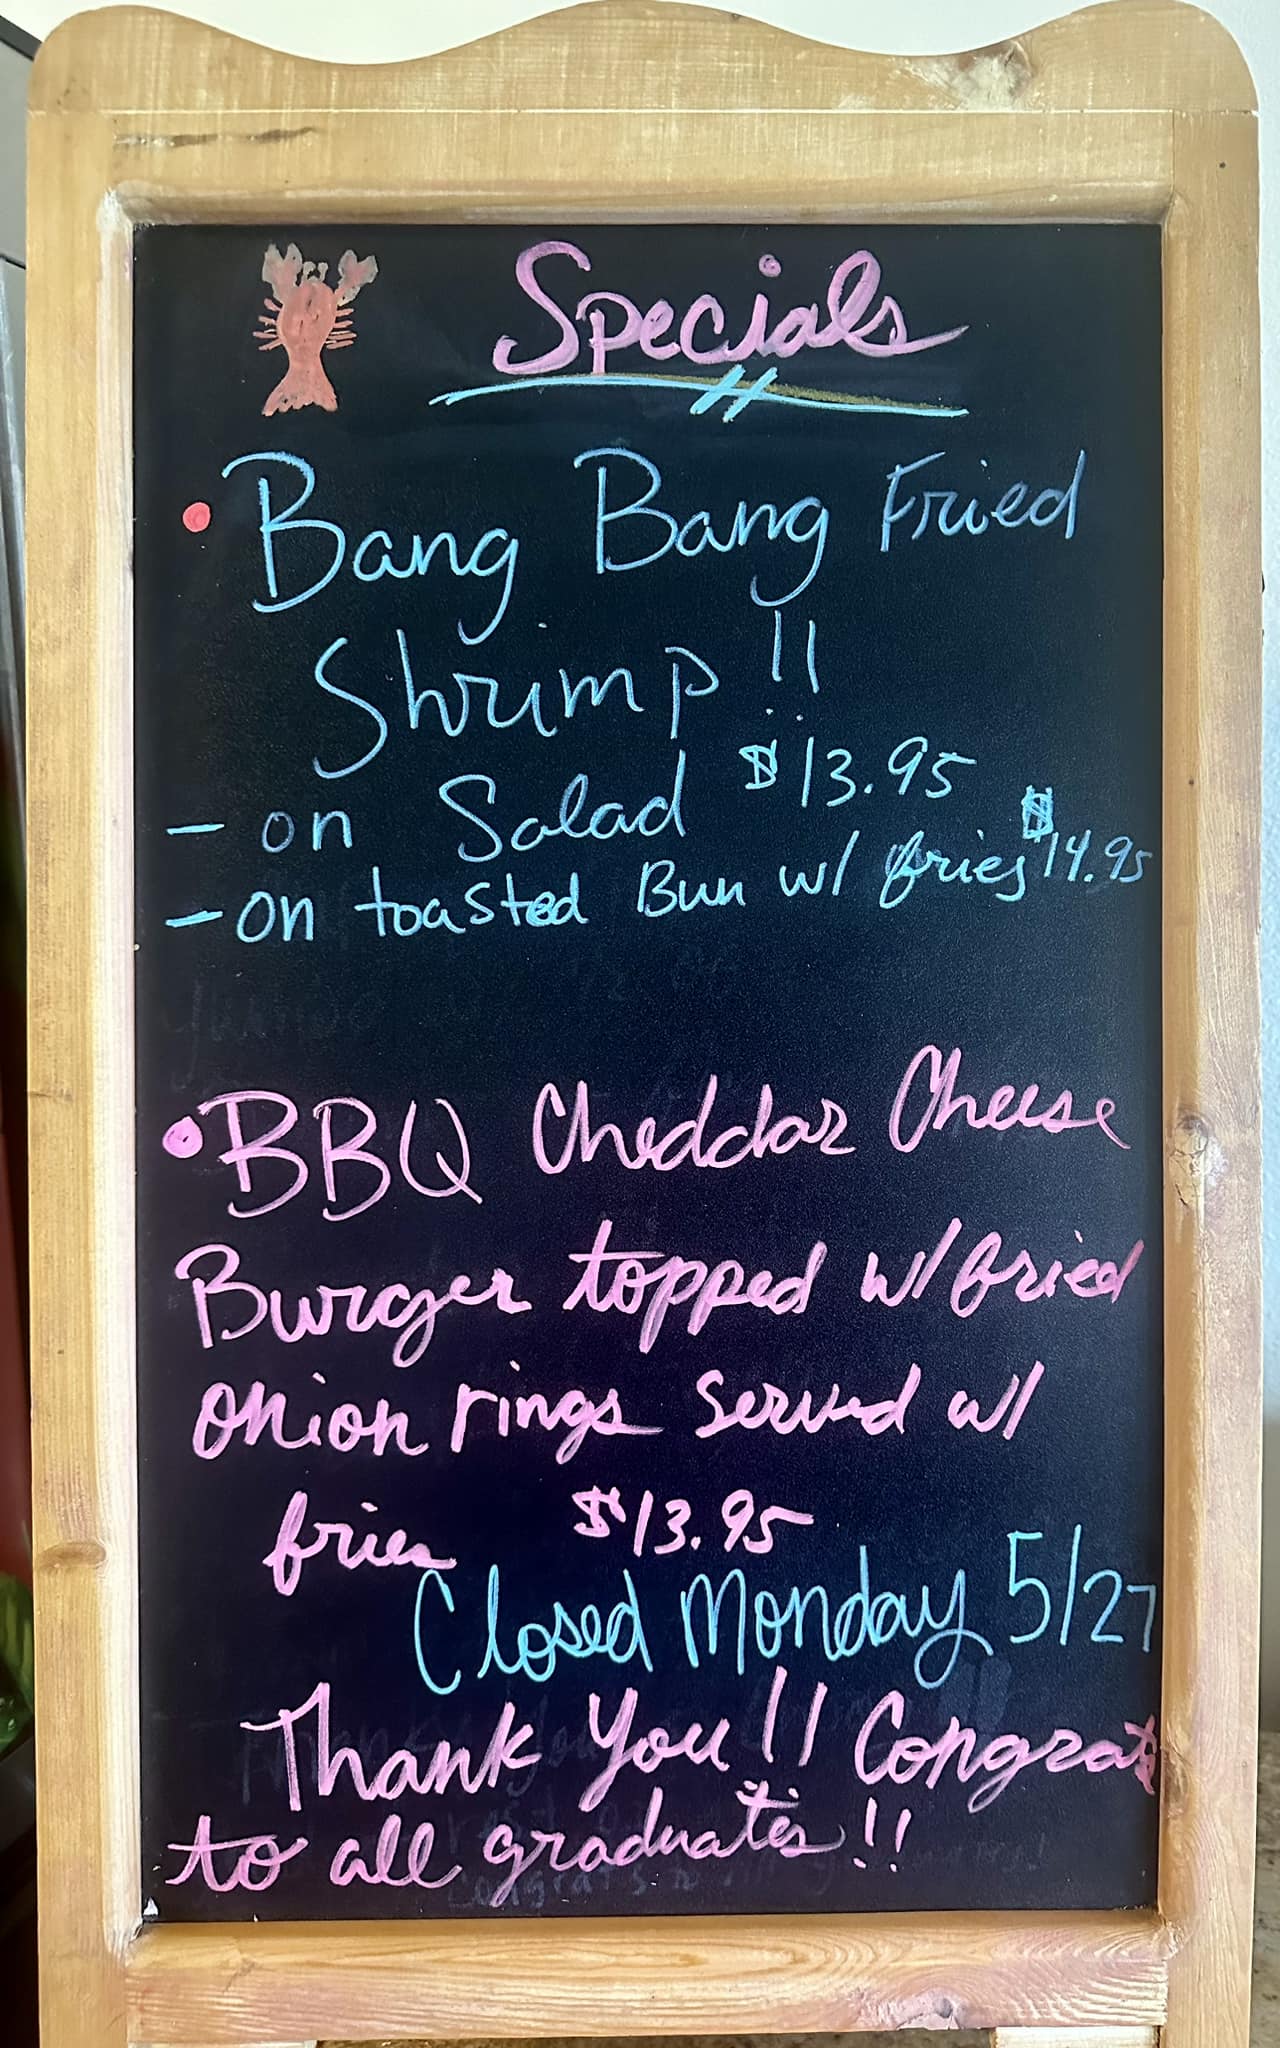 Specials
• Bang Bang Fried
Shrimp!!
- on Salad $13.95
- on toasted Bun w/ fries $14.95
• BBQ Cheddar Cheese
Burger topped w/ fried
onion rings served w/
fries $13.95
Closed Monday 5/27
Thank You!! Congrats
to all graduates!!